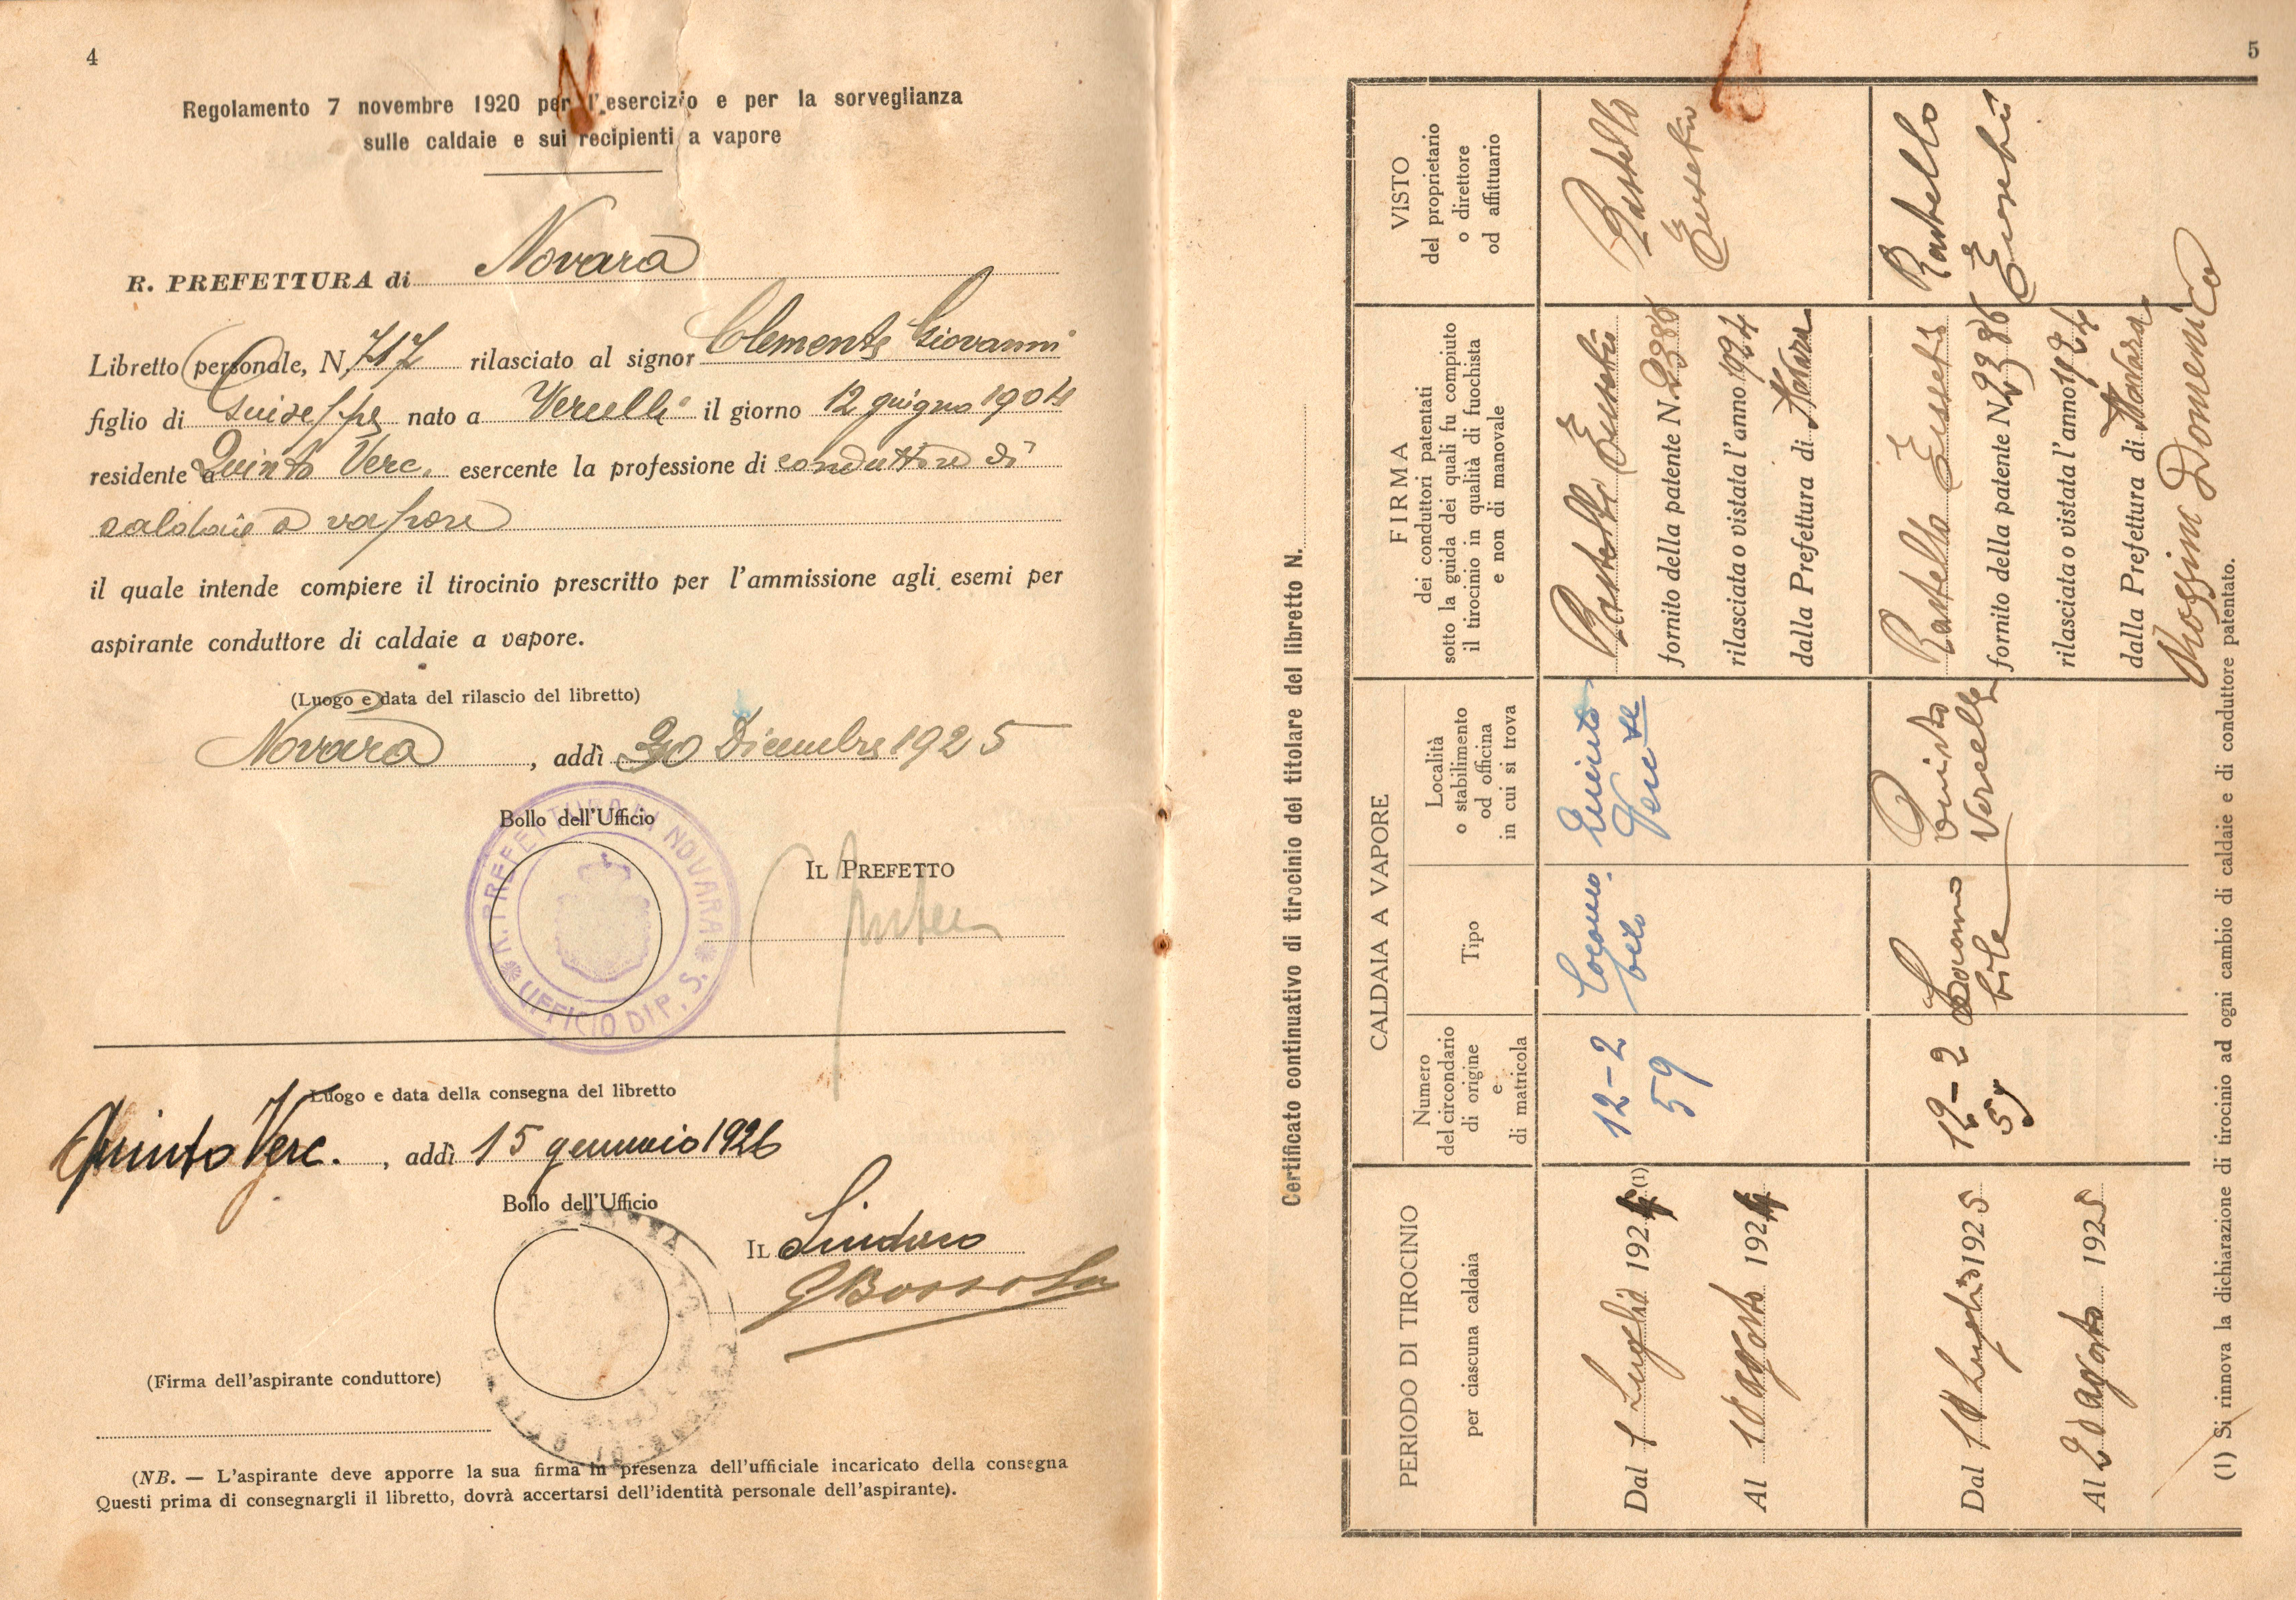 4
Regolamento 7 novembre 1920 per l'esercizio e per la sorveglianza
sulle caldaie e sui recipienti a vapore
R. PREFETTURA di Novara
Libretto personale, N. 717 rilasciato al signor Clemente Giovanni
figlio di Giuseppe nato a Vercelli il giorno 12 giugno 1904
residente a Quinto Verc. esercente la professione di conduttore di
caldaie a vapore
il quale intende compiere il tirocinio prescritto per l'ammissione agli esemi per
aspirante conduttore di caldaie a vapore.
(Luogo e data del rilascio del libretto)
Novara, addì 30 Dicembre 1925
Bollo dell'Ufficio
R. PREFETTURA DI NOVARA
UFFICIO DI P. S.
IL PREFETTO
Luogo e data della consegna del libretto
Quinto Verc., addì 15 gennaio 1926
Bollo dell'Ufficio
IL Sindaco
(Firma dell'aspirante conduttore)
(NB. — L'aspirante deve apporre la sua firma in presenza dell'ufficiale incaricato della consegna
Questi prima di consegnargli il libretto, dovrà accertarsi dell'identità personale dell'aspirante).
5
Certificato continuativo di tirocinio del titolare del libretto N.
PERIODO DI TIROCINIO
per ciascuna caldaia
CALDAIA A VAPORE
Numero
del circondario
di origine
e
di matricola
Tipo
Località
o stabilimento
od officina
in cui si trova
FIRMA
dei conduttori patentati
sotto la guida dei quali fu compiuto
il tirocinio in qualità di fuochista
e non di manovale
VISTO
del proprietario
o direttore
od affittuario
Dal 1 Luglio 192 (1)
Al 18 agosto 192
12-2
59
Locomo-
bile
Quinto
Verc
Rastello Eusebio
fornito della patente N. 2386
rilasciata o vistata l'anno 1924
dalla Prefettura di Novara
Rastello
Eusebio
Dal 10 Luglio 1925
Al 20 agosto 1925
12-2
59
Locomo
bile
Quinto
Vercelle
Rastello Eusebio
fornito della patente N. 2386
rilasciata o vistata l'anno 1924
dalla Prefettura di Novara
Domenico
Rastello
Eusebio
(1) Si rinnova la dichiarazione di tirocinio ad ogni cambio di caldaie e di conduttore patentato.